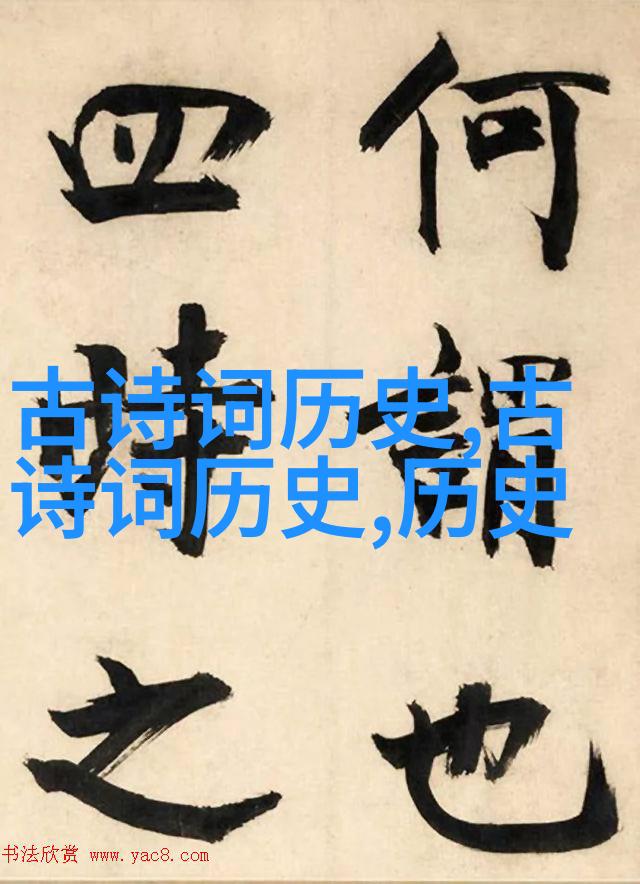 何謂也
四時之
古诗词历史,古
诗词历史,历史
书法欣赏 www.yac8.com